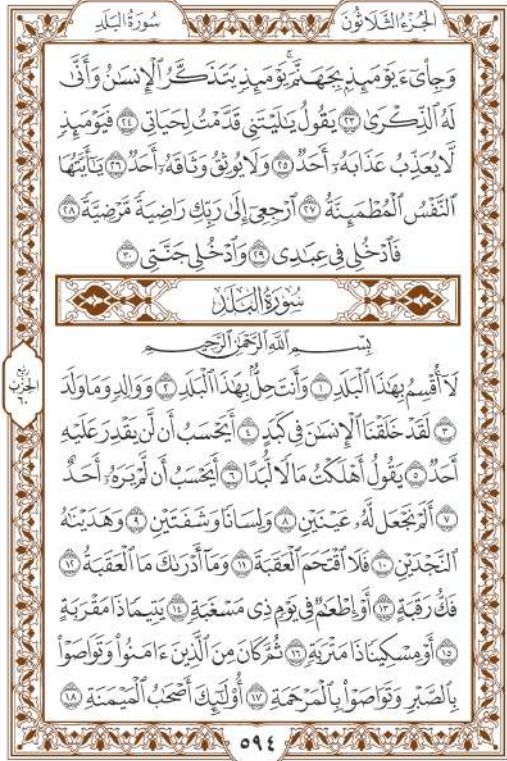 الجزء الثلاثون سورة البلد
وَجِا۟ىٓءَ يَوْمَئِذِۭ بِجَهَنَّمَۚ يَوْمَئِذٖ يَتَذَكَّرُ ٱلْإِنسَٰنُ وَأَنَّىٰ
لَهُ ٱلذِّكْرَىٰ ٢٣ يَقُولُ يَٰلَيْتَنِى قَدَّمْتُ لِحَيَاتِى ٢٤ فَيَوْمَئِذٖ
لَّا يُعَذِّبُ عَذَابَهُۥٓ أَحَدٌ ٢٥ وَلَا يُوثِقُ وَثَاقَهُۥٓ أَحَدٌ ٢٦ يَٰٓأَيَّتُهَا
ٱلنَّفْسُ ٱلْمُطْمَئِنَّةُ ٢٧ ٱرْجِعِىٓ إِلَىٰ رَبِّكِ رَاضِيَةً مَّرْضِيَّةً ٢٨
فَٱدْخُلِى فِى عِبَٰدِى ٢٩ وَٱدْخُلِى جَنَّتِى ٣٠
سُورَةُ البَلَدِ
بِسْمِ ٱللَّهِ ٱلرَّحْمَٰنِ ٱلرَّحِيمِ
لَآ أُقْسِمُ بِهَٰذَا ٱلْبَلَدِ ١ وَأَنتَ حِلٌّۢ بِهَٰذَا ٱلْبَلَدِ ٢ وَوَالِدٍ وَمَا وَلَدَ
٣ لَقَدْ خَلَقْنَا ٱلْإِنسَٰنَ فِى كَبَدٍ ٤ أَيَحْسَبُ أَن لَّن يَقْدِرَ عَلَيْهِ
أَحَدٌ ٥ يَقُولُ أَهْلَكْتُ مَالًا لُّبَدًا ٦ أَيَحْسَبُ أَن لَّمْ يَرَهُۥٓ أَحَدٌ
٧ أَلَمْ نَجْعَل لَّهُۥ عَيْنَيْنِ ٨ وَلِسَانًا وَشَفَتَيْنِ ٩ وَهَدَيْنَٰهُ
ٱلنَّجْدَيْنِ ١٠ فَلَا ٱقْتَحَمَ ٱلْعَقَبَةَ ١١ وَمَآ أَدْرَىٰكَ مَا ٱلْعَقَبَةُ ١٢
فَكُّ رَقَبَةٍ ١٣ أَوْ إِطْعَٰمٌ فِى يَوْمٍ ذِى مَسْغَبَةٍ ١٤ يَتِيمًا ذَا مَقْرَبَةٍ
١٥ أَوْ مِسْكِينًا ذَا مَتْرَبَةٍ ١٦ ثُمَّ كَانَ مِنَ ٱلَّذِينَ ءَامَنُوا۟ وَتَوَاصَوْا۟
بِٱلصَّبْرِ وَتَوَاصَوْا۟ بِٱلْمَرْحَمَةِ ١٧ أُو۟لَٰٓئِكَ أَصْحَٰبُ ٱلْمَيْمَنَةِ ١٨
ربع
الحزب
٦٠
٥٩٤